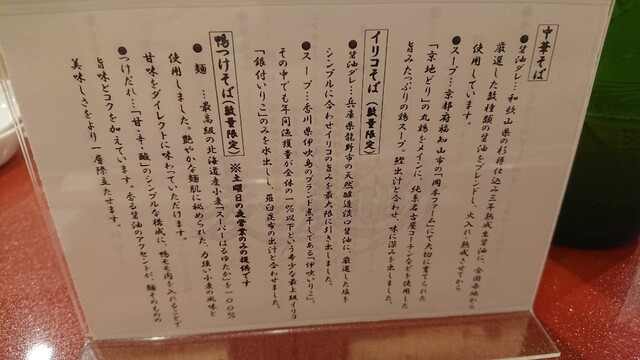 中華そば
●醤油ダレ…和歌山県の杉樽仕込み三年熟成生醤油に、全国各地から
厳選した数種類の醤油をブレンドし、火入れ・熟成させてから
使用しています。
●スープ…京都府福知山市の「岡本ファーム」にて大切に育てられた
「京地どり」の丸鶏をメインに、純系名古屋コーチンなどを使用した
旨みたっぷりの鶏スープ。鰹出汁と合わせ、味に深みを出しました。
イリコそば(数量限定)
●醤油ダレ…兵庫県龍野市の天然醸造淡口醤油に、厳選した塩を
シンプルに合わせイリコの旨みを最大限に引き出しました。
●スープ…香川県伊吹島のブランド煮干しである「伊吹いりこ」。
その中でも年間漁獲量が全体の1%以下という希少な最上級イリコ
「銀付いりこ」のみを水出しし、羅臼昆布の出汁と合わせました。
鴨つけそば(数量限定) ※土曜日の夜営業のみの提供です
●麺 …最高級の北海道産小麦「スーパーはるゆたか」を100%
使用しました。艶やかな麺肌に秘められた、力強い小麦の風味と
甘味をダイレクトに味わっていただけます。
●つけだれ…「甘・辛・酸」のシンプルな構成に、鴨モモ肉を入れることで
旨味とコクを加えています。香る醤油のアクセントが、麺そのものの
美味しさをより一層際立たせます。